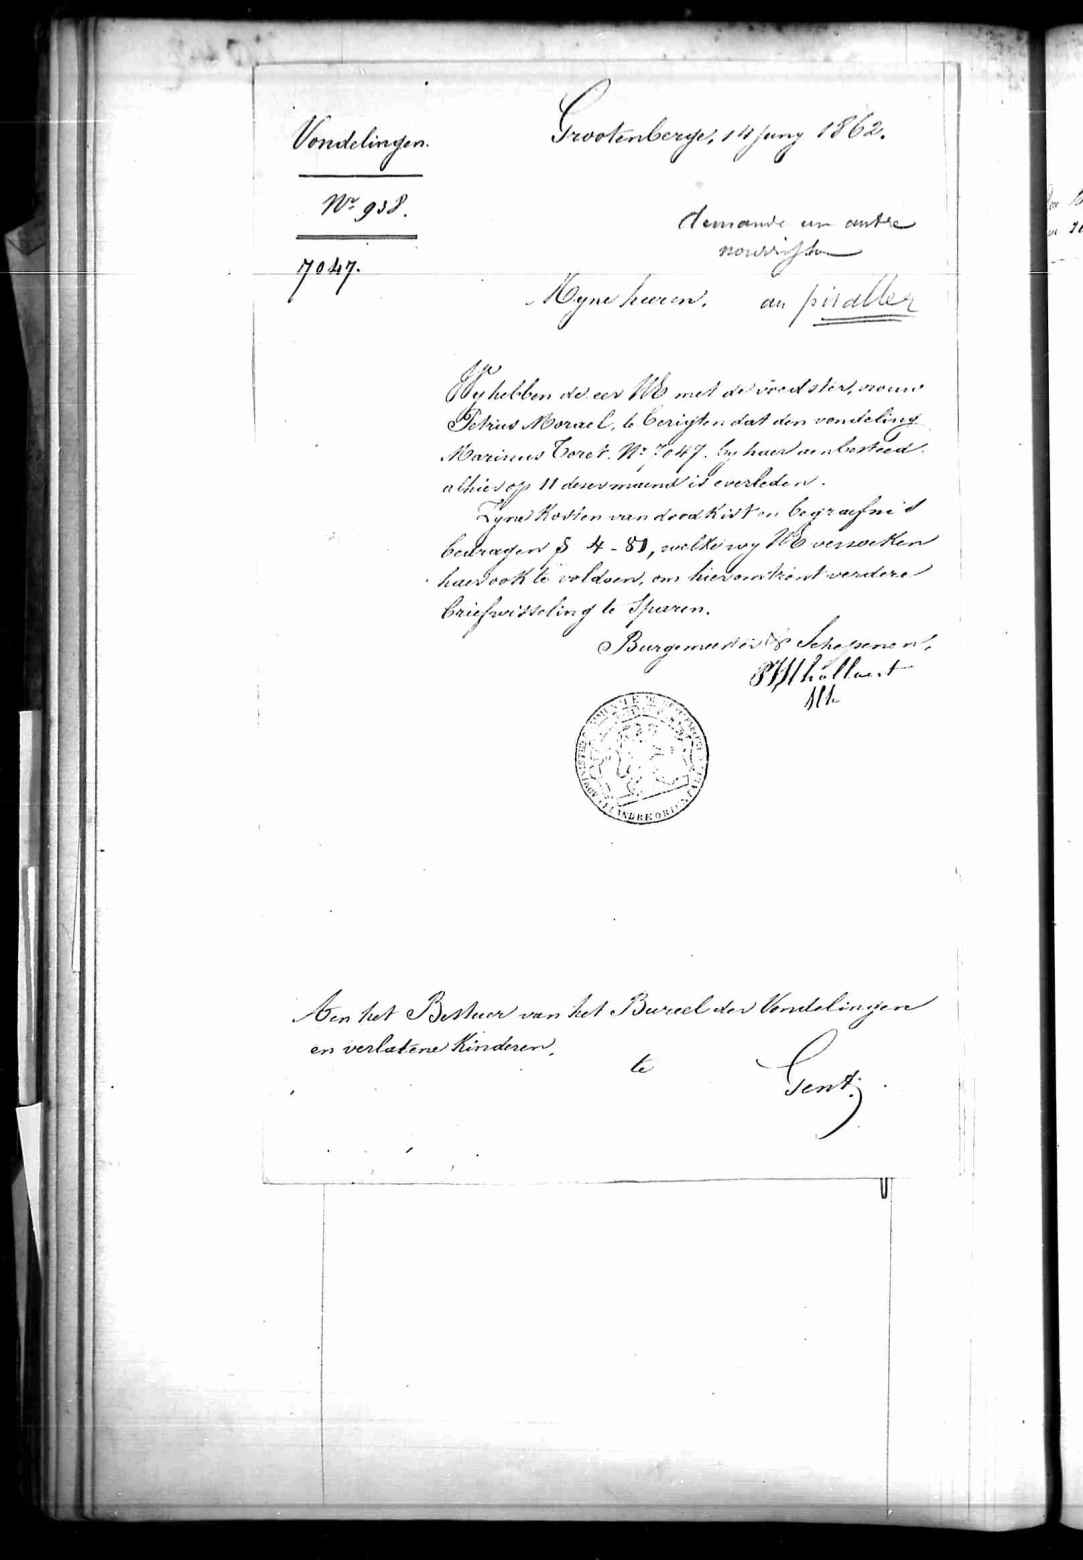 Vondelingen.
Nr 938.
7047.
Grootenberge, 14 Juny 1862.
demande un autre
au pis aller
Myne heeren,
Wy hebben de eer UE met de voedster, vrouw
Petrus Morael, te berigten dat den vondeling
Marinus Toret. Nr 7047. by haer aenbesteed
alhier op 11 deser maend is overleden.
Zyne Kosten van doodkist en begraefnis
bedragen 4-81, welke wy UE versoeken
haer ook te voldoen, om hieromtrent verdere
briefwisseling te sparen.
Burgemeester & Schepenen,
FLANDRE ORIENTALE
Aen het Bestuer van het Bureel der Vondelingen
en verlatene Kinderen,
te
Gent.